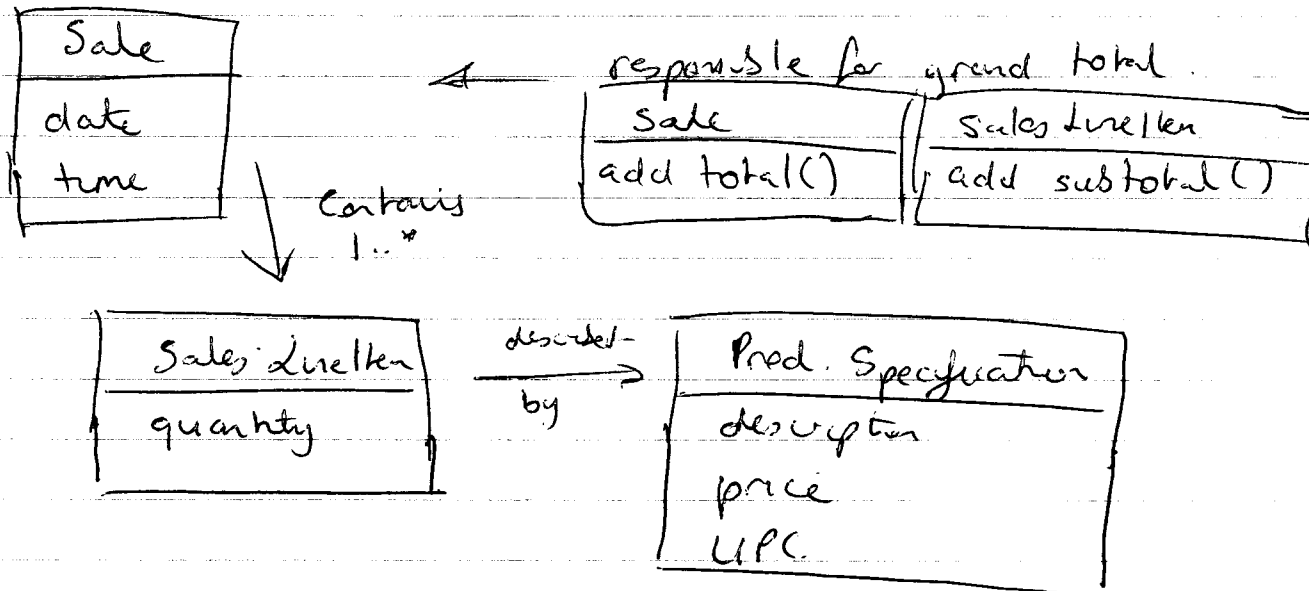 Sale
date
time
responsible for grand total.
Sale
add total()
Sales LineItem
add subtotal()
Contains
1..*
Sales LineItem
quantity
described-
by
Prod. Specification
description
price
UPC.